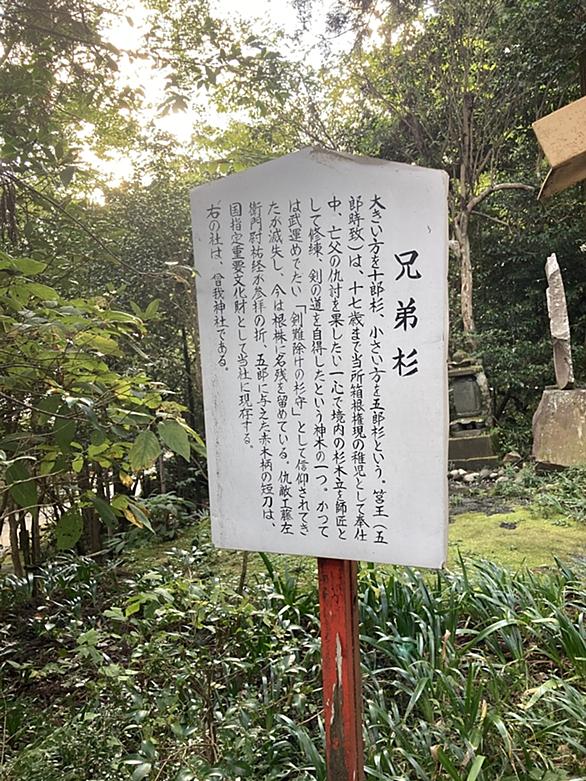 兄弟杉
大きい方を十郎杉、小さい方を五郎杉という。筥王（五
郎時致）は、十七歳まで当所箱根権現の稚児として奉仕
中、亡父の仇討を果したい一心で境内の杉木立を師匠と
して修練、剣の道を自得したという神木の一つ。かつて
は武運めでたい「剣難除けの杉守」として信仰されてき
たが滅失し、今は根株に名残を留めている。仇敵工藤左
衛門尉祐経が参拝の折、五郎に与えた赤木柄の短刀は、
国指定重要文化財として当社に現存する。
右の社は、曾我神社である。